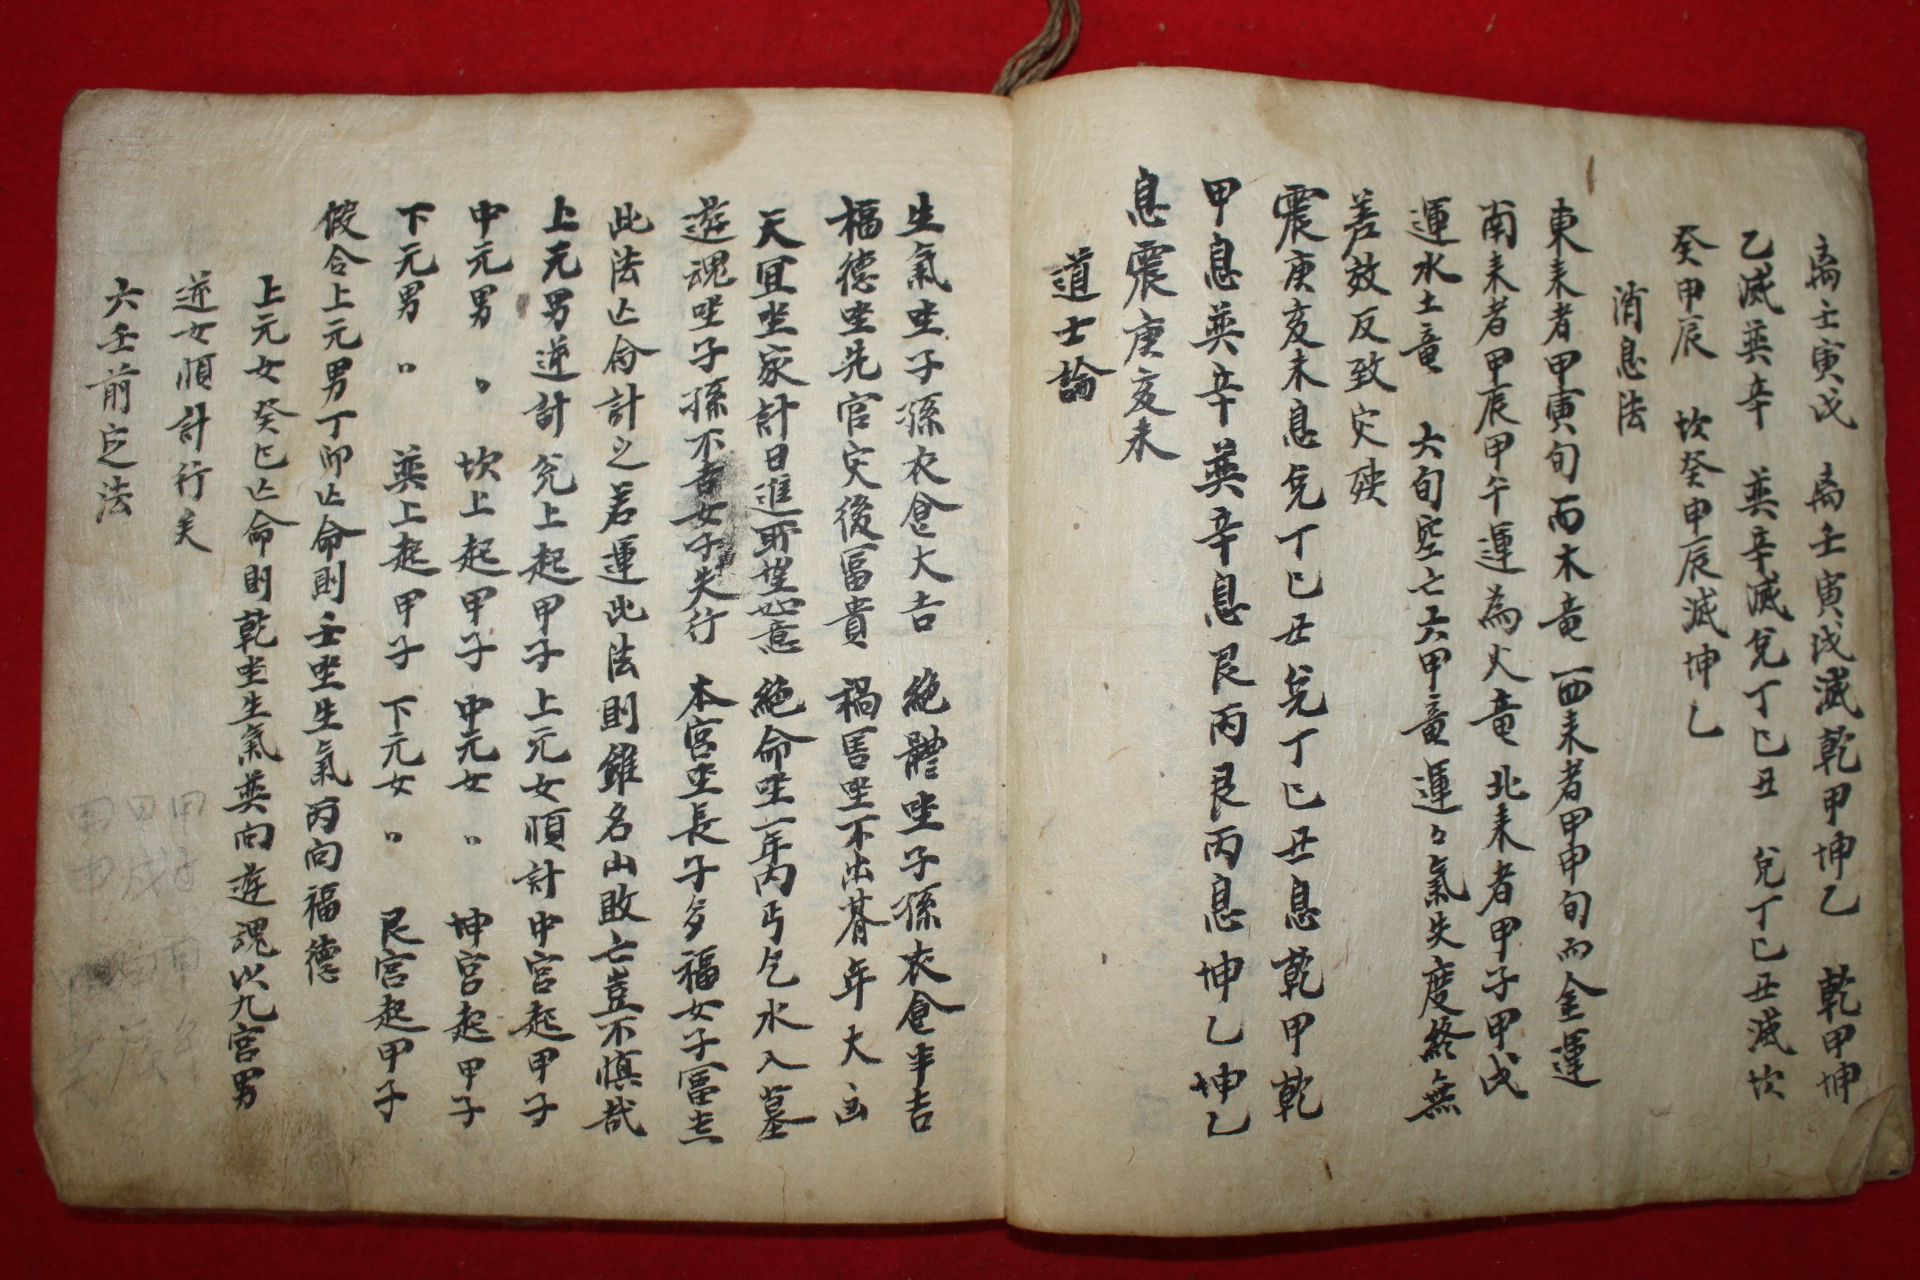 离壬寅戌 离壬寅戌滅乾甲坤乙 乾甲坤
乙滅巽辛 巽辛滅兌丁巳丑 兌丁巳丑滅坎
癸甲辰 坎癸申辰滅坤乙
消息法
東来者甲寅旬而木竜 西来者甲申旬而金運
南来者甲辰甲午運為火竜 北来者甲子甲戌
運水土竜 六旬空亡六甲竜運〻氣失度終無
善效反致灾殃
震庚亥未息兌丁巳丑 兌丁巳丑息乾甲 乾
甲息巽辛 巽辛息艮丙 艮丙息坤乙 坤乙
息震庚亥未
道士論
生氣坐子孫衣食大吉 絶體坐子孫衣食半吉
福德坐先官灾後富貴 禍害坐不出朞年大凶
天宜坐家計日進所望如意 絶命坐一年內丐乞水入墓
遊魂坐子孫不吉女子失行 本宮坐長子多福女子富吉
此法亡命計之若運此法則雖名山敗亡豈不愼哉
上元男逆計 兌上起甲子 上元女順計中宮起甲子
中元男 〃 坎上起甲子 中元女 〃 坤宮起甲子
下元男 〃 巽上起甲子 下元女 〃 艮宮起甲子
假令上元男丁卯亡命則壬坐生氣丙向福德
上元女癸巳亡命則乾坐生氣巽向遊魂以九宮男
逆女順計行矣
六壬前定法